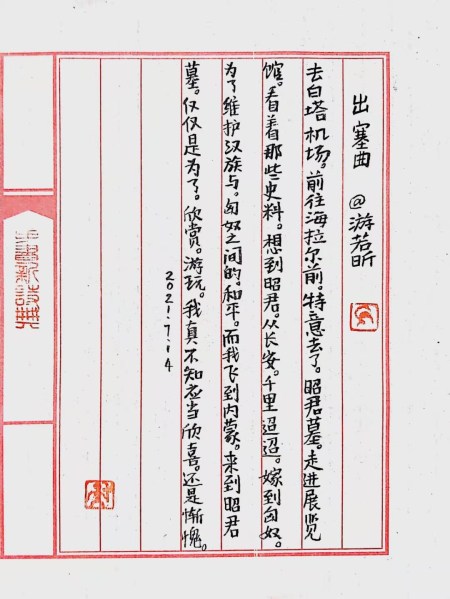 出塞曲 @游若昕
去白塔机场。前往海拉尔前。特意去了。昭君墓。走进展览
馆。看着那些史料。想到昭君。从长安。千里迢迢。嫁到匈奴。
为了维护汉族与。匈奴之间的。和平。而我飞到内蒙。来到昭君
墓。仅仅是为了。欣赏。游玩。我真不知应当欣喜。还是惭愧。
2021.7.14